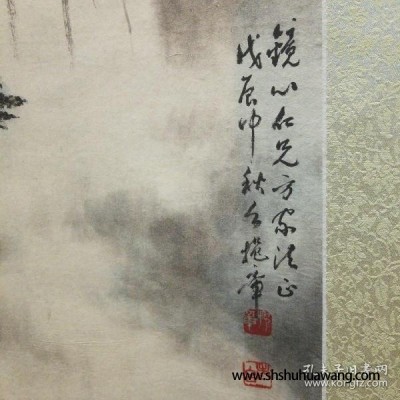 鏡心仁兄方家法正
戊辰中秋
www.shshuhuawang.com
孔夫子旧书网
www.kongfz.com